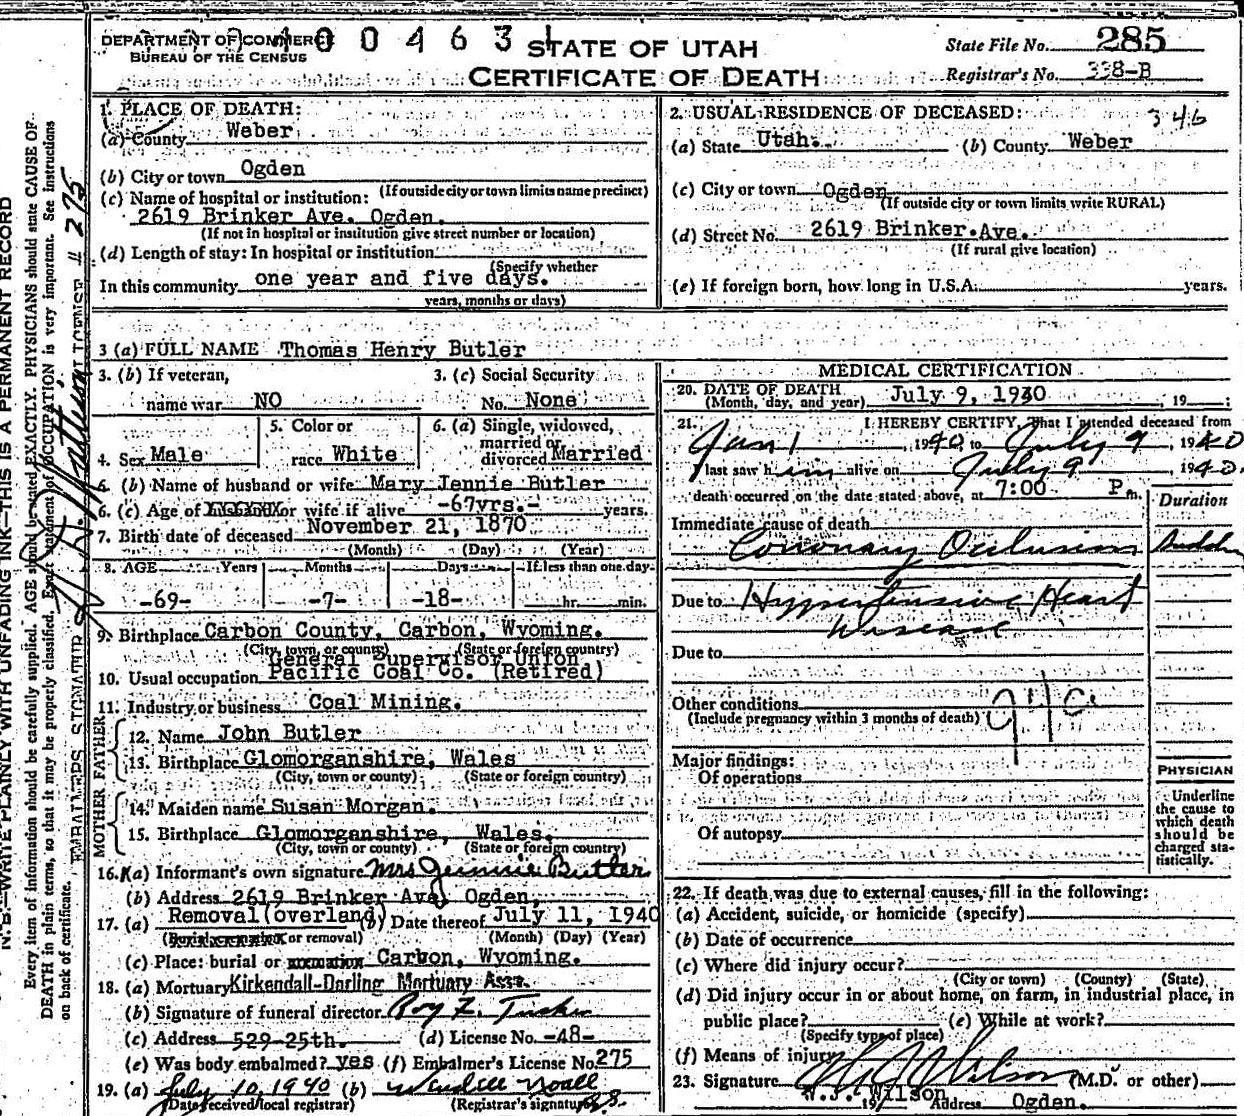 DEPARTMENT OF COMMERCE
BUREAU OF THE CENSUS
400463
STATE OF UTAH
CERTIFICATE OF DEATH
State File No. 285
Registrar's No. 338-B
1. PLACE OF DEATH:
(a) County Weber
(b) City or town Ogden
(If outside city or town limits name precinct)
(c) Name of hospital or institution:
2619 Brinker Ave. Ogden.
(If not in hospital or institution give street number or location)
(d) Length of stay: In hospital or institution
(Specify whether
In this community one year and five days.
years, months or days)
2. USUAL RESIDENCE OF DECEASED:
346
(a) State Utah. (b) County Weber
(c) City or town Ogden
(If outside city or town limits write RURAL)
(d) Street No. 2619 Brinker Ave.
(If rural give location)
(e) If foreign born, how long in U.S.A. years.
3 (a) FULL NAME Thomas Henry Butler
3. (b) If veteran,
name war NO
3. (c) Social Security
No. None
4. Sex Male
5. Color or
race White
6. (a) Single, widowed,
married or
divorced Married
6. (b) Name of husband or wife Mary Jennie Butler
6. (c) Age of XXXXXXX or wife if alive -67yrs.- years.
7. Birth date of deceased November 21, 1870
(Month) (Day) (Year)
8. AGE Years Months Days If less than one day
-69- -7- -18- hr. min.
9. Birthplace Carbon County, Carbon, Wyoming.
(City, town, or county) (State or foreign country)
General Supervisor Union
10. Usual occupation Pacific Coal Co. (Retired)
11. Industry or business Coal Mining.
FATHER
12. Name John Butler
13. Birthplace Glomorganshire, Wales
(City, town or county) (State or foreign country)
MOTHER
14. Maiden name Susan Morgan.
15. Birthplace Glomorganshire, Wales.
(City, town or county) (State or foreign country)
16. (a) Informant's own signature Mrs Jennie Butler
(b) Address 2619 Brinker Ave, Ogden,
17. (a) Removal (overland) (b) Date thereof July 11, 1940
(Burial, cremation or removal) (Month) (Day) (Year)
(c) Place: burial or cremation Carbon, Wyoming.
18. (a) Mortuary Kirkendall-Darling Mortuary Assn.
(b) Signature of funeral director Roy F. Tucker
(c) Address 529-25th. (d) License No. -48-
(e) Was body embalmed? yes (f) Embalmer's License No. 275
19. (a) July 10, 1940 (b) Wendell Noall
(Date received local registrar) (Registrar's signature)
MEDICAL CERTIFICATION
20. DATE OF DEATH
(Month, day, and year) July 9, 1930 19
21. I HEREBY CERTIFY, That I attended deceased from
Jan 1, 1940, to July 9, 1940
last saw him alive on July 9, 1940.
death occurred on the date stated above, at 7:00 P m.
Duration
Immediate cause of death
Coronary Occlusion
Due to Hypertensive Heart
Disease
Due to
Other conditions
(Include pregnancy within 3 months of death)
Major findings:
Of operations
Of autopsy
PHYSICIAN
Underline
the cause to
which death
should be
charged sta-
tistically.
22. If death was due to external causes, fill in the following:
(a) Accident, suicide, or homicide (specify)
(b) Date of occurrence
(c) Where did injury occur?
(City or town) (County) (State)
(d) Did injury occur in or about home, on farm, in industrial place, in
public place? (e) While at work?
(Specify type of place)
(f) Means of injury
23. Signature W J Wilson (M.D. or other)
W.J. Wilson
19 Address Ogden.
N. B.—WRITE PLAINLY WITH UNFADING INK—THIS IS A PERMANENT RECORD
Every item of information should be carefully supplied. AGE should be stated EXACTLY. PHYSICIANS should state CAUSE OF
DEATH in plain terms, so that it may be properly classified. Exact statement of OCCUPATION is very important. See instructions
on back of certificate.
LICENSE # 275